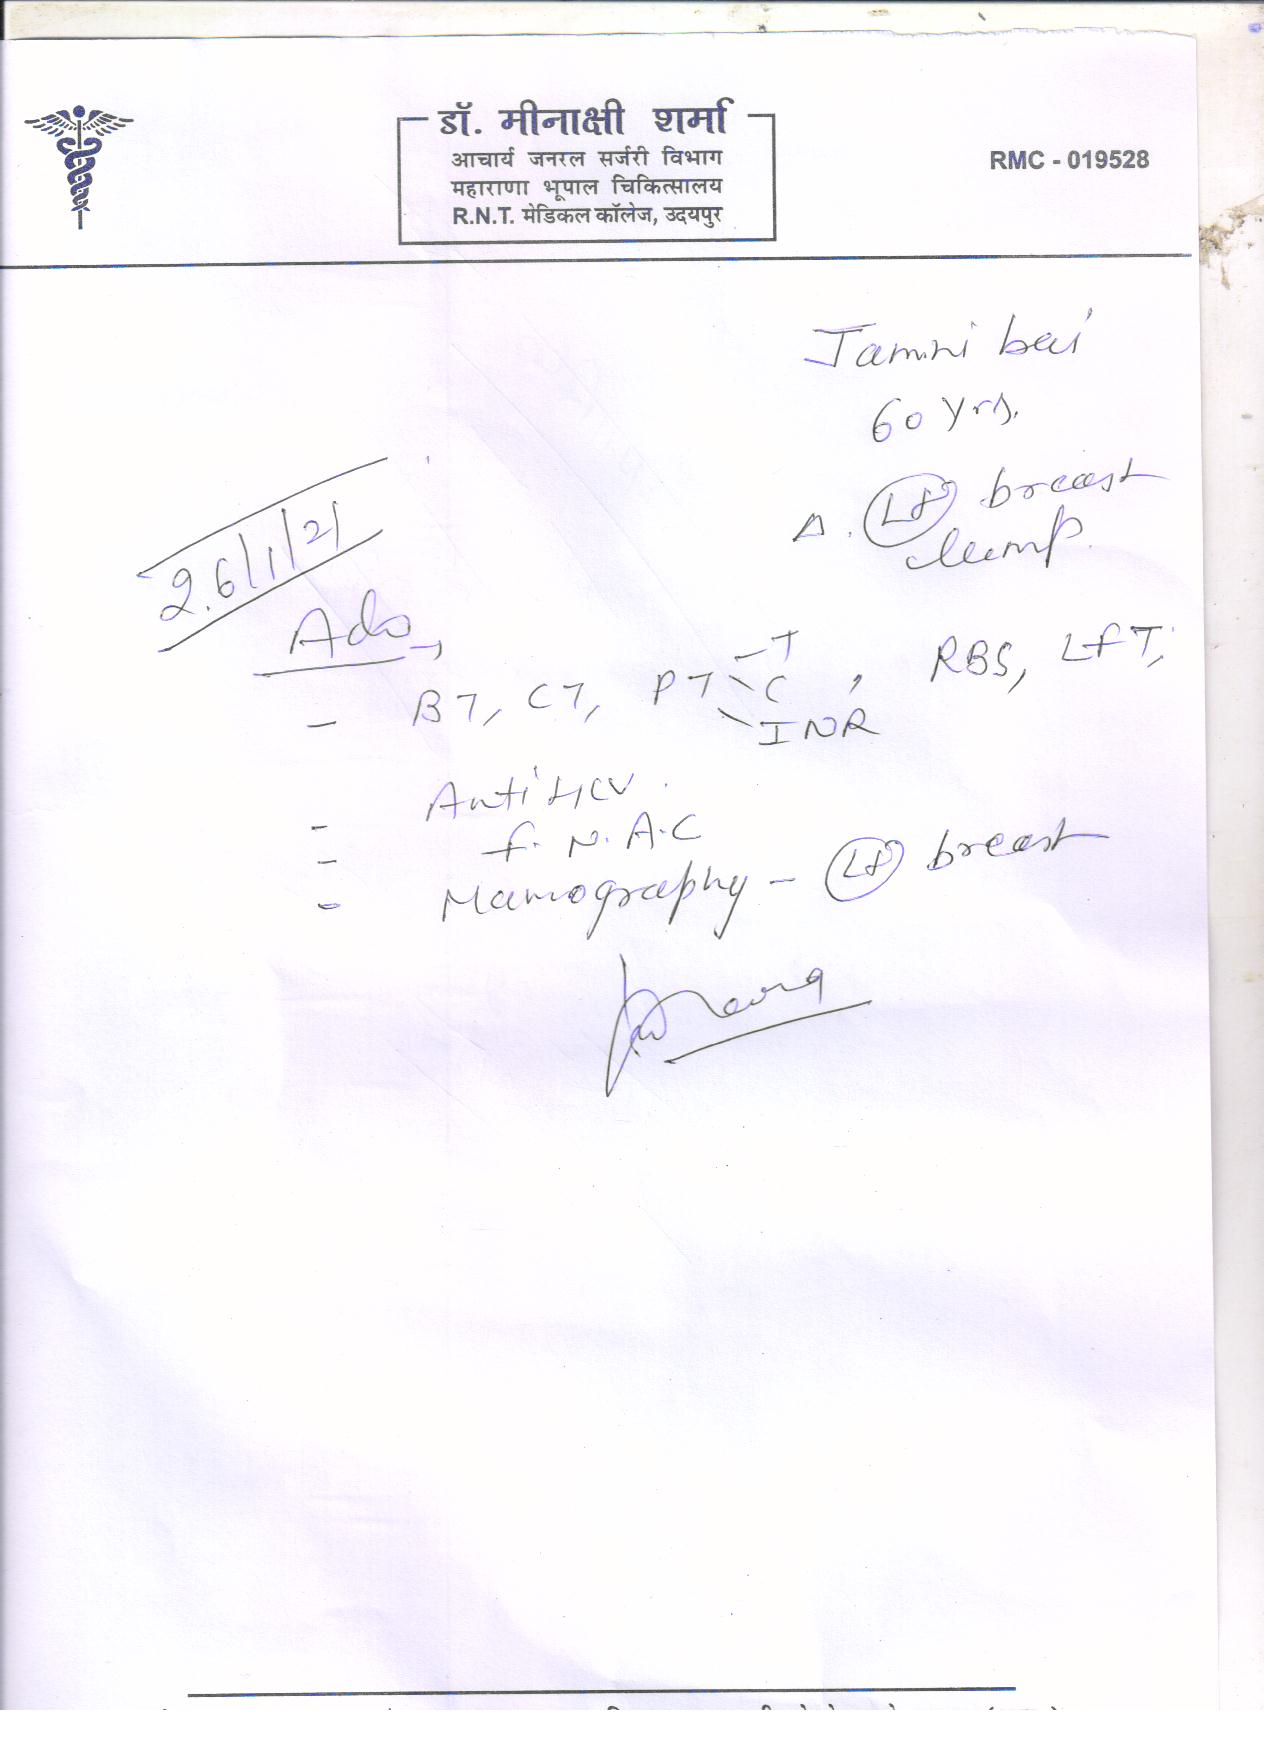 डॉ. मीनाक्षी शर्मा
आचार्य जनरल सर्जरी विभाग
महाराणा भूपाल चिकित्सालय
R.N.T. मेडिकल कॉलेज, उदयपुर
RMC - 019528
Jamni bai
60 yrs.
Δ. Lt breast
lump.
26/1/21
Adv,
- BT, CT, PT - T
\ C , RBS, LFT,
\ INR
- Anti HCV
- F. N. A. C
- Mamography - Lt breast